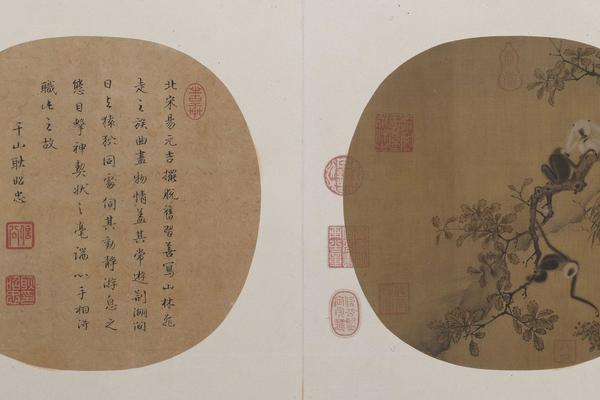 北宋易元吉擺脫舊習善寫山林飛
走之族曲盡物情蓋其常遊荊湖間
日与猿狖同處伺其動靜游息之
態目擊神契狀之毫端心手相得
職此之故
千山耿昭忠